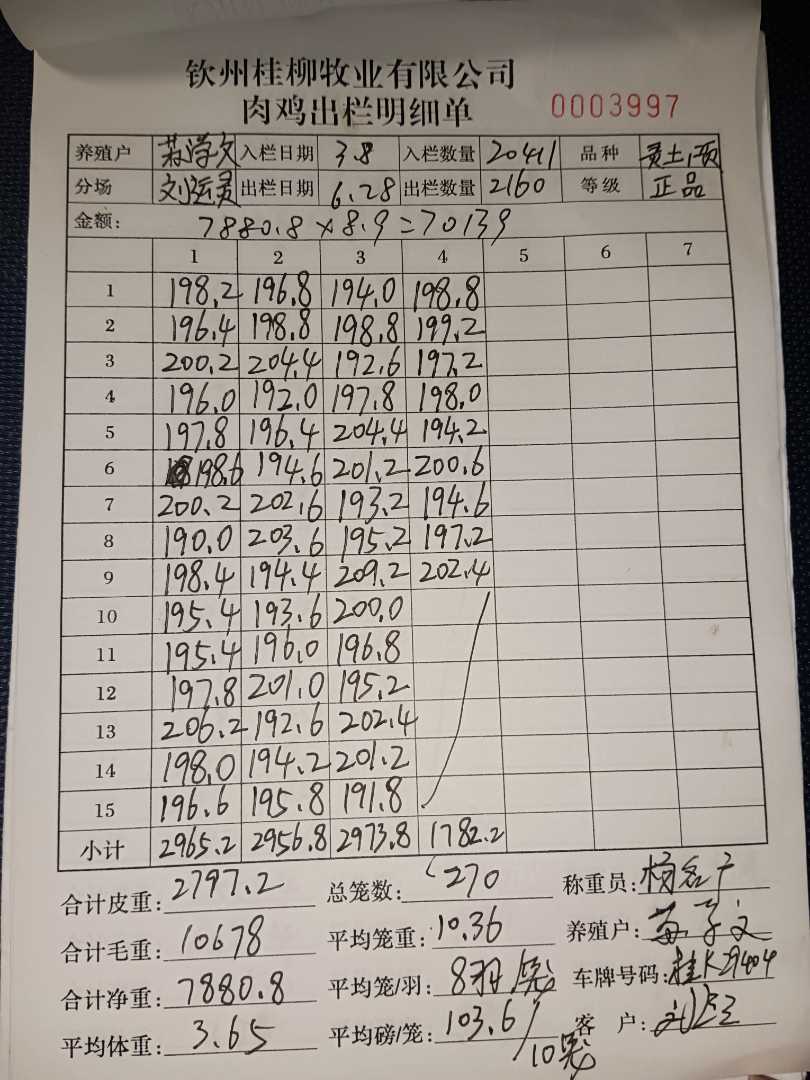 钦州桂柳牧业有限公司
肉鸡出栏明细单 0003997
养殖户 入栏日期 3.8 入栏数量 20411 品种 项
分场 刘运灵 出栏日期 6.28 出栏数量 2160 等级 正品
金额: 7880.8×8.9=70139
1 2 3 4 5 6 7
1 198.2 196.8 194.0 198.8
2 196.4 198.8 198.8 199.2
3 200.2 204.4 192.6 197.2
4 196.0 192.0 197.8 198.0
5 197.8 196.4 204.4 194.2
6 198.6 194.6 201.2 200.6
7 200.2 202.6 193.2 194.6
8 190.0 203.6 195.2 197.2
9 198.4 194.4 209.2 202.4
10 195.4 193.6 200.0
11 195.4 196.0 196.8
12 197.8 201.0 195.2
13 206.2 192.6 202.4
14 198.0 194.2 201.2
15 196.6 195.8 191.8
小计 2965.2 2956.8 2973.8 1782.2
合计皮重: 2797.2 总笼数: 270 称重员:
合计毛重: 10678 平均笼重: 10.36 养殖户:
合计净重: 7880.8 平均笼/羽: 8羽/笼 车牌号码: 桂K29404
平均体重: 3.65 平均磅/笼: 103.6/10笼 客户: